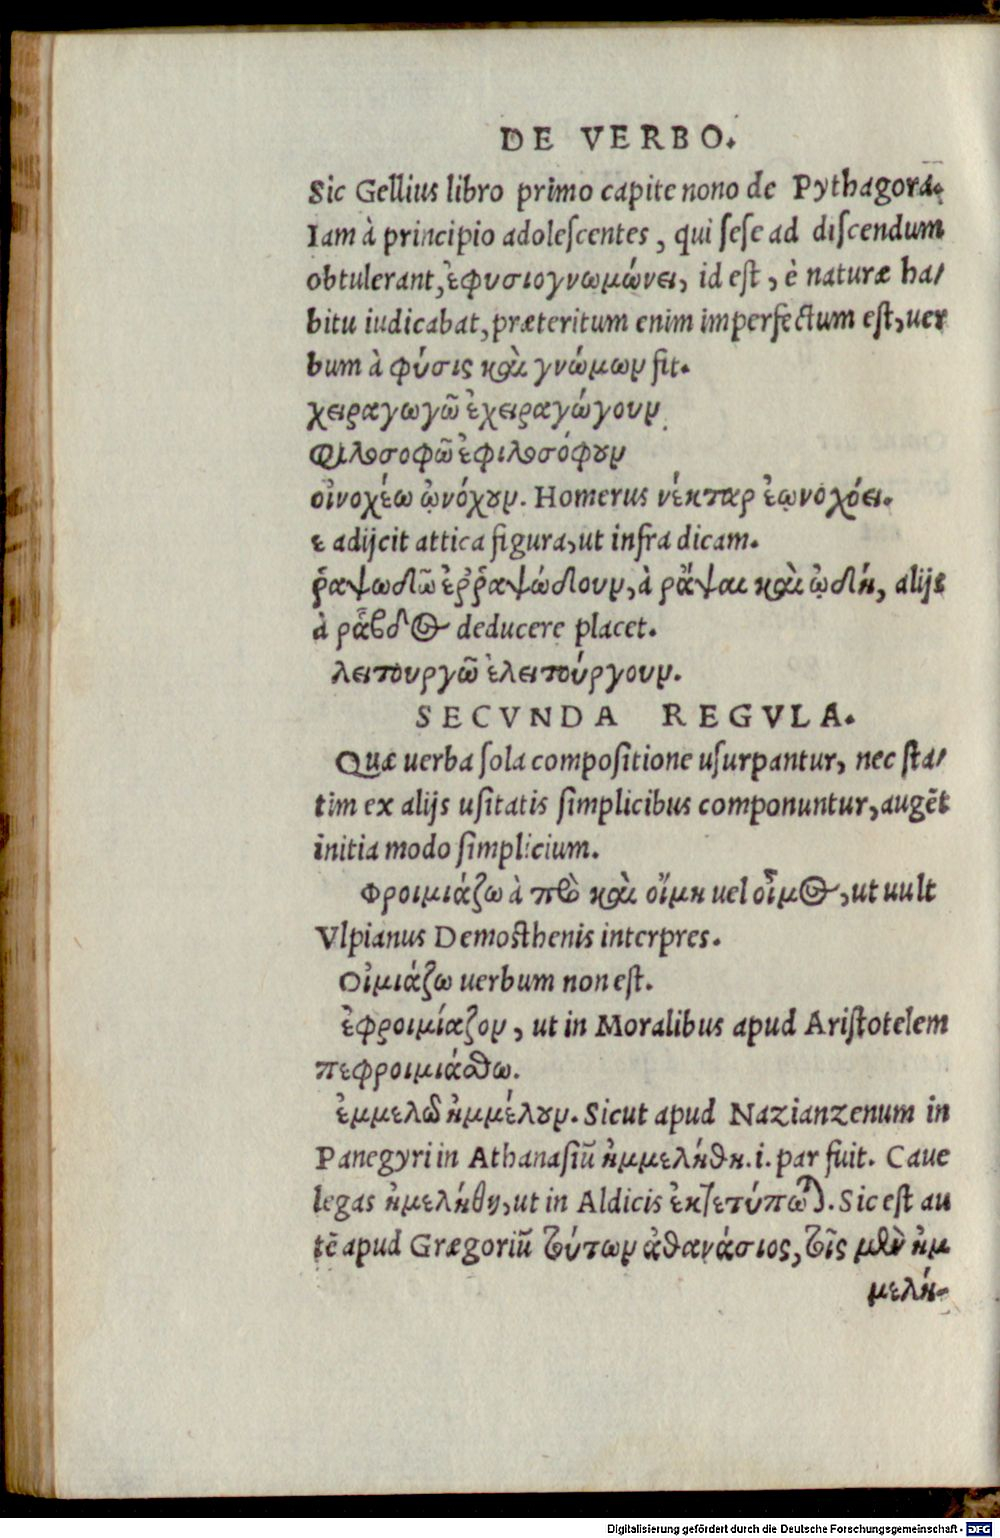 DE VERBO.
Sic Gellius libro primo capite nono de Pythagora.
Iam à principio adolescentes, qui sese ad discendum
obtulerant, ἐφυσιογνωμώνει, id est, è naturæ ha/
bitu iudicabat, præteritum enim imperfectum est, uer
bum à φύσις καὶ γνώμων fit.
χειραγωγῶ ἐχειραγώγουν
Φιλοσοφῶ ἐφιλοσόφουν
οἰνοχέω ᾠνόχουν. Homerus νέκταρ ἐωνοχόει.
ε adijcit attica figura, ut infra dicam.
ῥαψωδῶ ἐῤῥαψώδουν, à ῥάψαι καὶ ᾠδή, alijs
à ράβδος deducere placet.
λειτουργῶ ἐλειτούργουν.
SECVNDA REGVLA.
Quæ uerba sola compositione usurpantur, nec sta/
tim ex alijs usitatis simplicibus componuntur, augēt
initia modo simplicium.
Φροιμιάζω à πρὸ καὶ οἴμη uel οἶμος, ut uult
Vlpianus Demosthenis interpres.
Οἰμιάζω uerbum non est.
ἐφροιμίαζον, ut in Moralibus apud Aristotelem
πεφροιμιάσθω.
ἐμμελῶ ἠμμέλουν. Sicut apud Nazianzenum in
Panegyri in Athanasiū ἠμμελήθη .i. par fuit. Caue
legas ἠμελήθη, ut in Aldicis ἐκτετύπωται. Sic est au
tē apud Gregoriū τούτων ἀθανάσιος, τοῖς μὲν ἠμ
μελή-
Digitalisierung gefördert durch die Deutsche Forschungsgemeinschaft - DFG